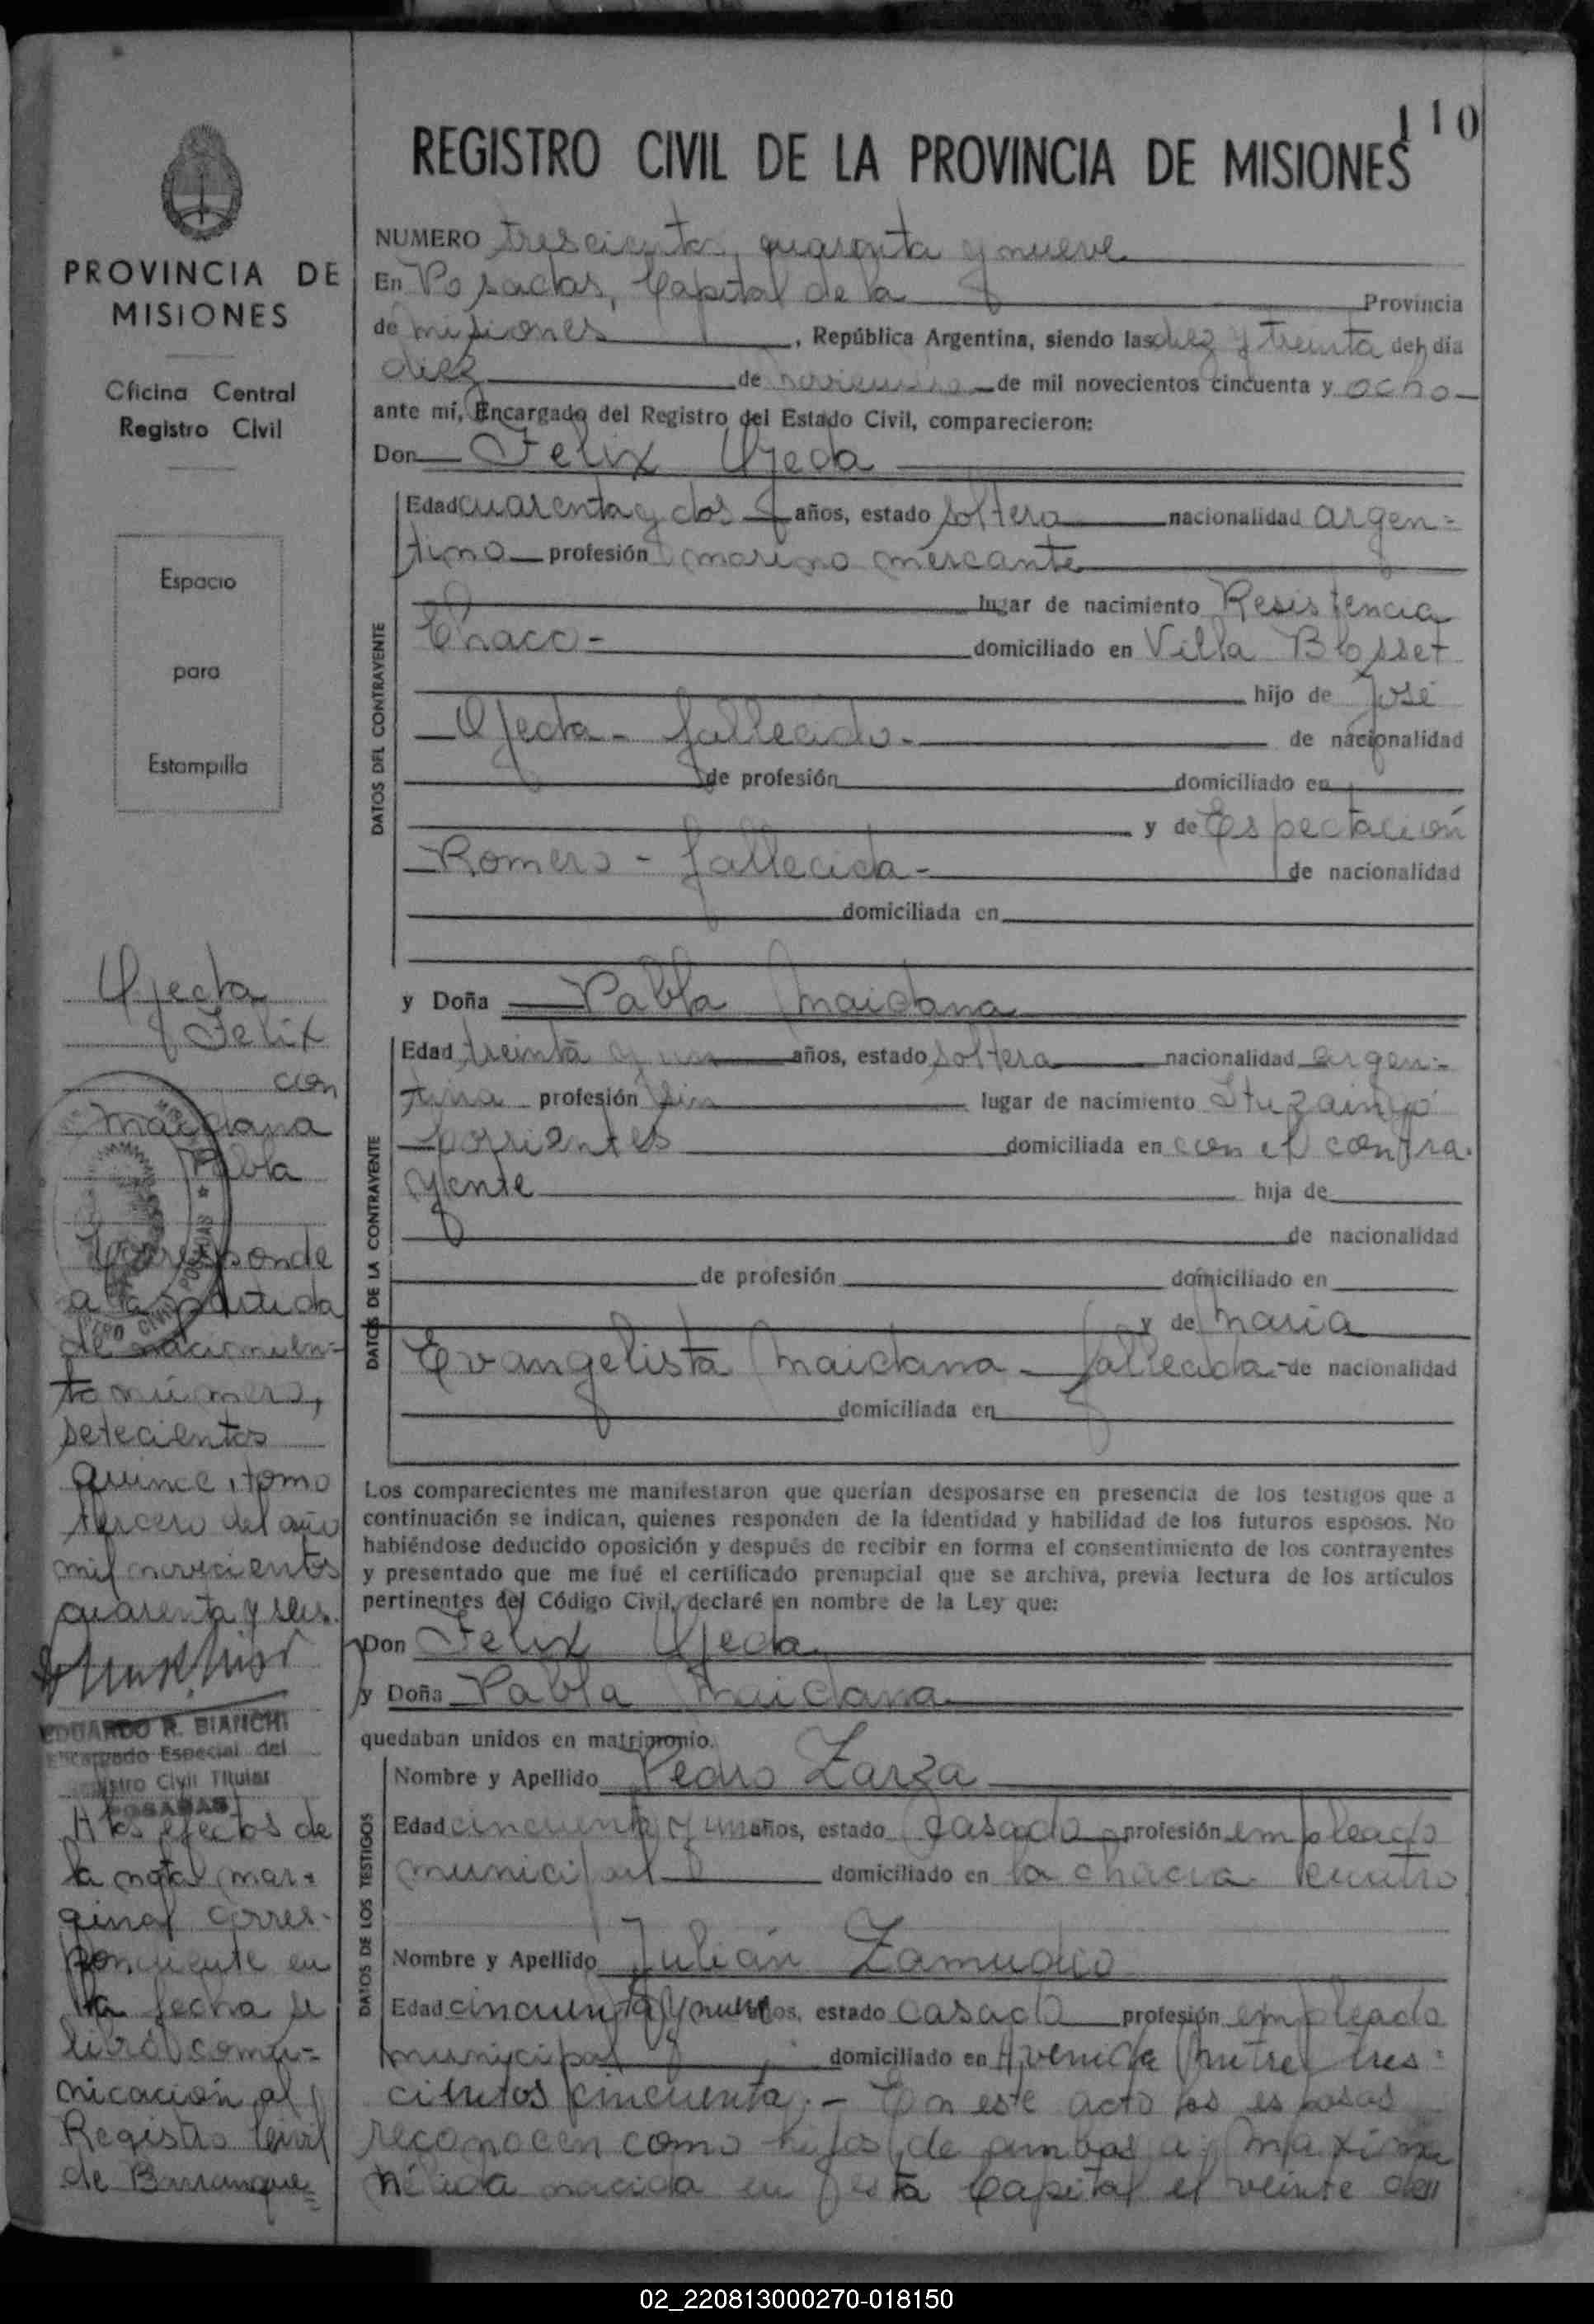 110
REGISTRO CIVIL DE LA PROVINCIA DE MISIONES
PROVINCIA DE
MISIONES
Oficina Central
Registro Civil
Espacio
para
Estampilla
NUMERO trescientos cuarenta y nueve
En Posadas, Capital de la Provincia
de misiones, República Argentina, siendo las diez y treinta del día
diez de noviembre de mil novecientos cincuenta y ocho
ante mí, Encargado del Registro del Estado Civil, comparecieron:
Don Felix Ojeda
DATOS DEL CONTRAYENTE
Edad cuarenta y dos años, estado soltero nacionalidad argen=
tino profesión marino mercante
lugar de nacimiento Resistencia
Chaco- domiciliado en Villa Blosset
hijo de José
Ojeda - fallecido - de nacionalidad
de profesión domiciliado en
y de Espectación
Romero - fallecida - de nacionalidad
domiciliada en
y Doña Pabla Maidana
DATOS DE LA CONTRAYENTE
Edad treinta y un años, estado soltera nacionalidad argen=
tina profesión sin lugar de nacimiento Ituzaingó
Corrientes domiciliada en con el contra.
yente hija de
de nacionalidad
de profesión domiciliado en
y de Maria
Evangelista Maidana - fallecida - de nacionalidad
domiciliada en
Los comparecientes me manifestaron que querían desposarse en presencia de los testigos que a
continuación se indican, quienes responden de la identidad y habilidad de los futuros esposos. No
habiéndose deducido oposición y después de recibir en forma el consentimiento de los contrayentes
y presentado que me fué el certificado prenupcial que se archiva, previa lectura de los artículos
pertinentes del Código Civil, declaré en nombre de la Ley que:
Don Felix Ojeda
y Doña Pabla Maidana
quedaban unidos en matrimonio.
DATOS DE LOS TESTIGOS
Nombre y Apellido Pedro Zarza
Edad cincuenta y un años, estado casado profesión empleado
municipal domiciliado en la chacra cuatro
Nombre y Apellido Julián Zamudio
Edad cincuenta y nueve años, estado casado profesión empleado
municipal domiciliado en Avenida Mitre tres=
cientos cincuenta.- En este acto los esposos
reconocen como hijos de ambos a: Maxima
Nélida nacida en esta Capital el veinte de
Ojeda
Felix
con
Maidana
Pabla
Corresponde
a la partida
de nacimien=
to número,
setecientos
quince, tomo
tercero del año
mil novecientos
cuarenta y seis.
EDUARDO R. BIANCHI
Encargado Especial del
Registro Civil Titular
POSADAS
A los efectos de
la nota mar=
ginal corres-
pondiente en
la fecha se
libró comu=
nicación al
Registro Civil
de Barranque=
02_220813000270-018150